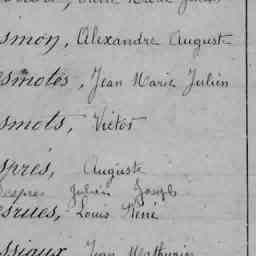 smon, Alexandre Auguste
esmotes, Jean Marie Julien
smots, Victor
spres, Auguste
Despres Julien Joseph
esrues, Louis Rene
ssiaux Jean Mathurin